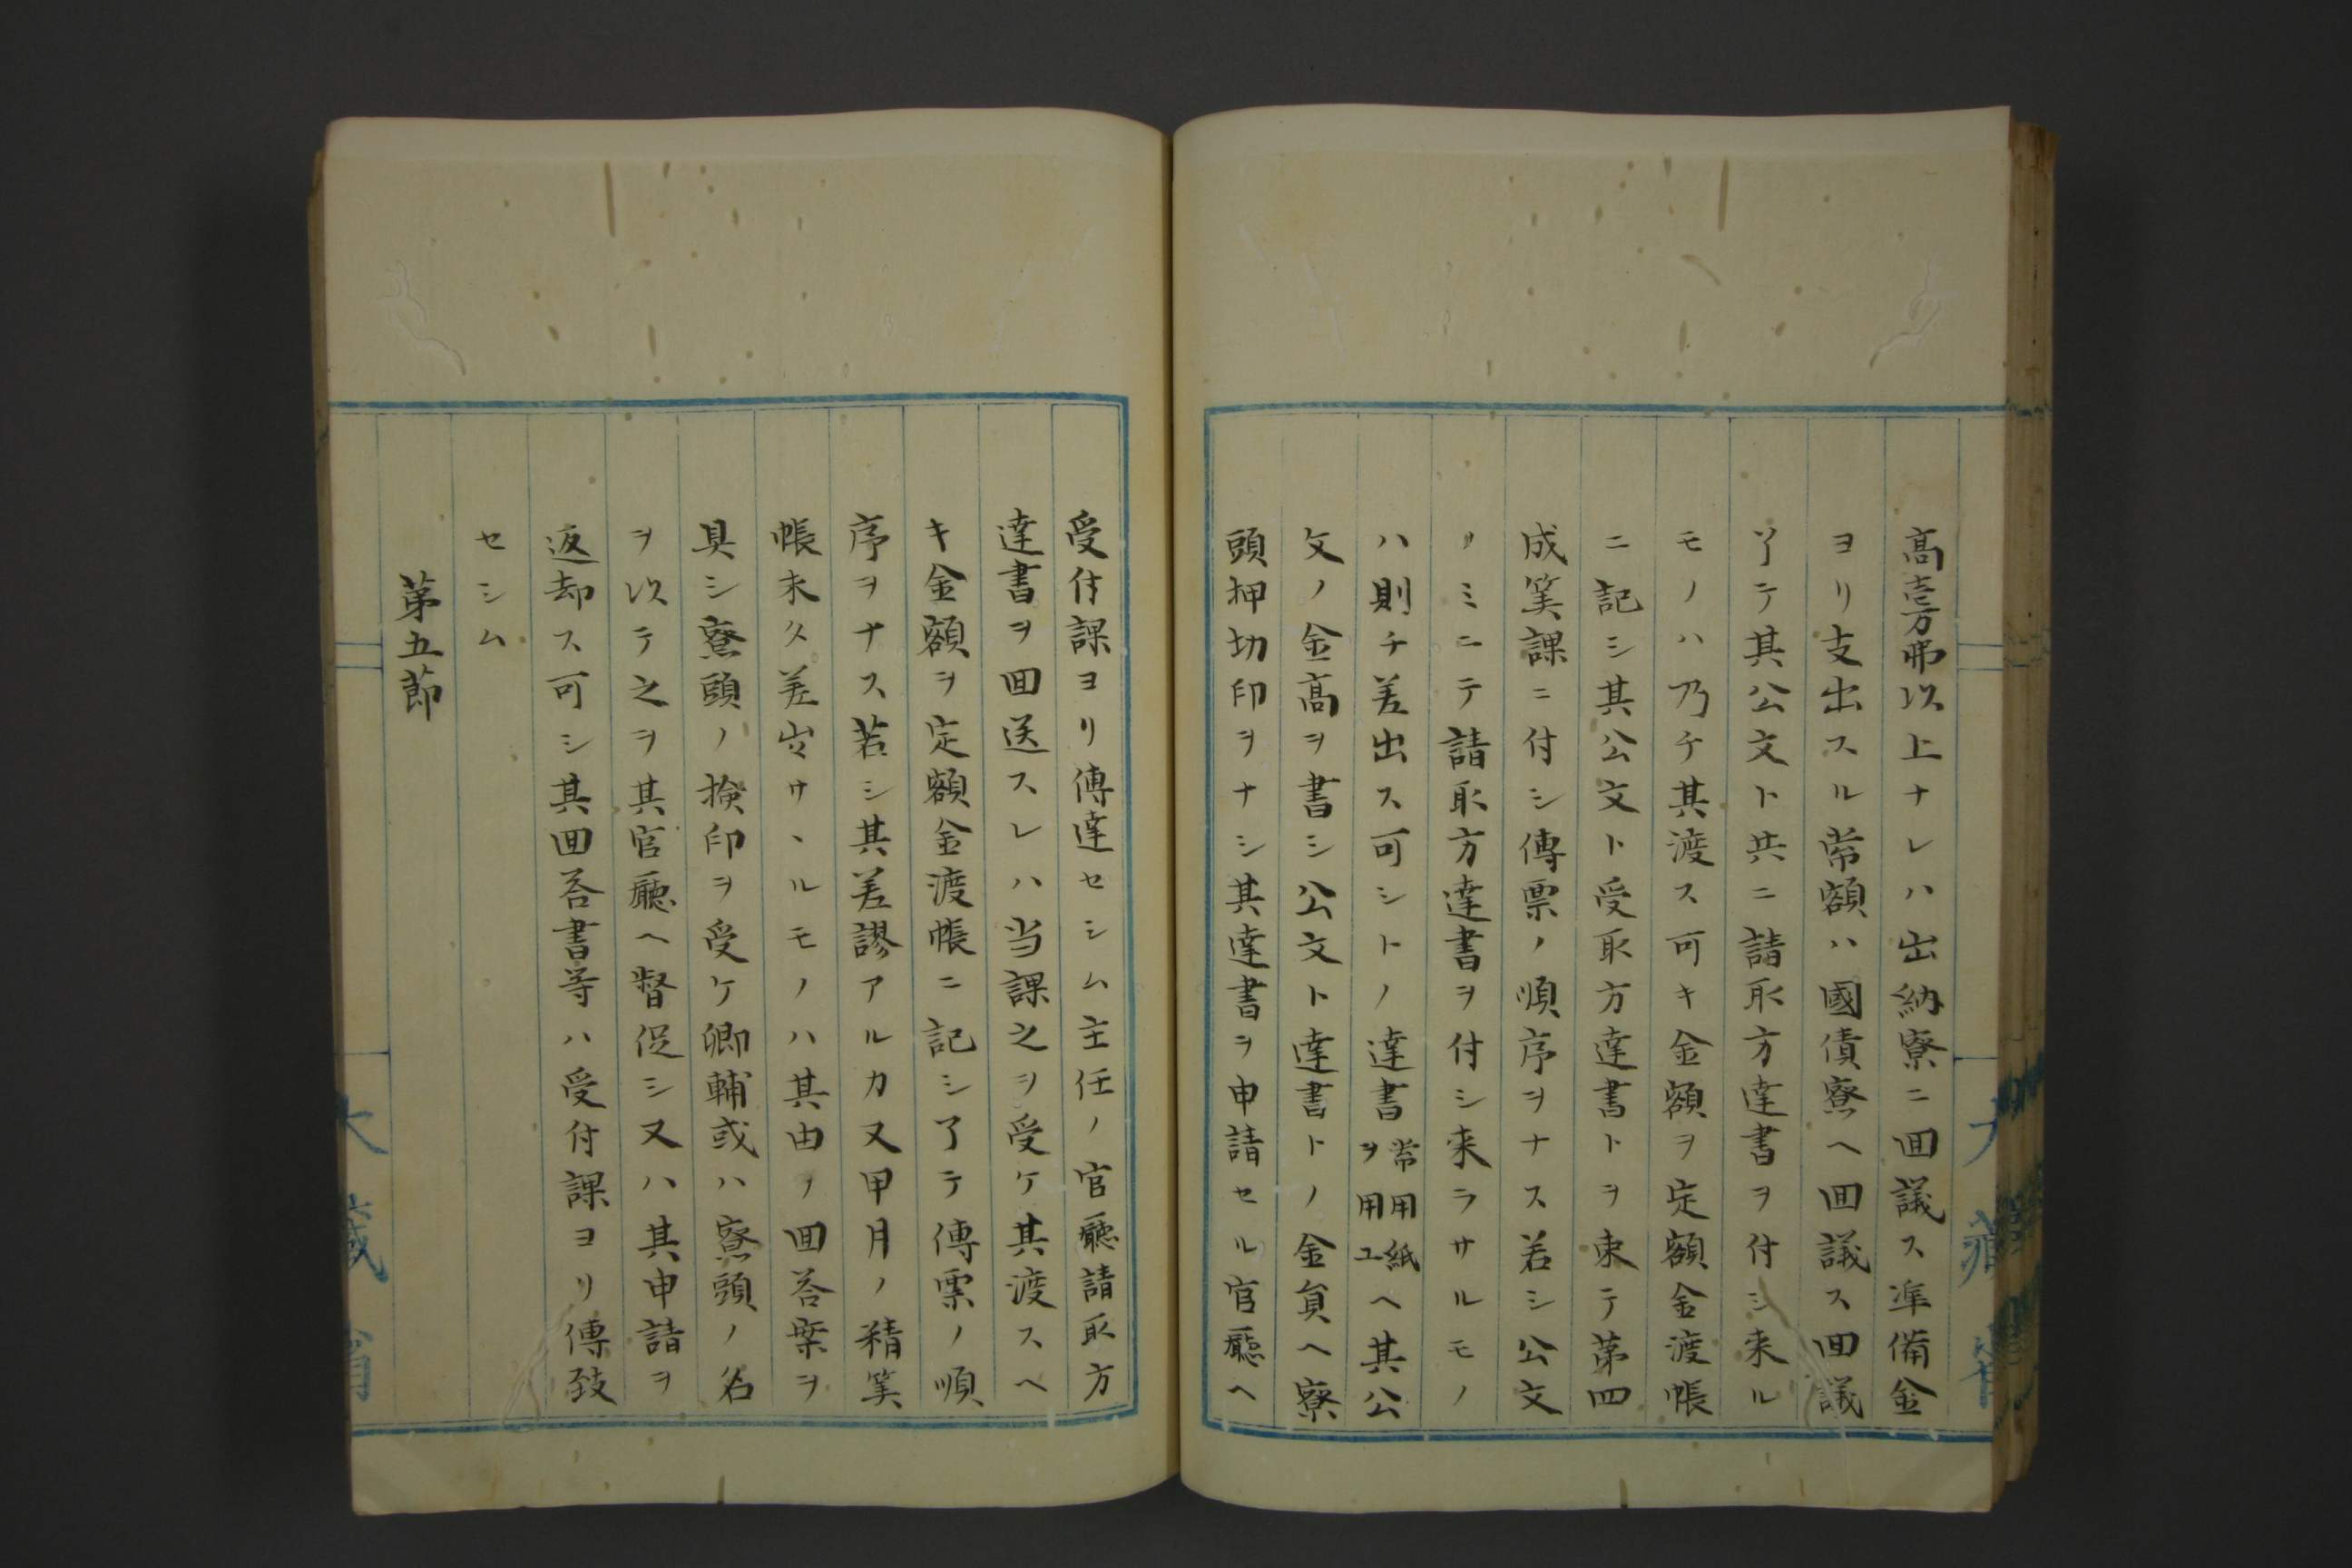 高壱万弗以上ナレハ出納寮ニ回議ス準備金
ヨリ支出スル常額ハ國債寮ヘ回議ス回議
了テ其公文ト共ニ請取方達書ヲ付シ来ル
モノハ乃チ其渡ス可キ金額ヲ定額金渡帳
ニ記シ其公文ト受取方達書トヲ束テ第四
成筭課ニ付シ傳票ノ順序ヲナス若シ公文
ノミニテ請取方達書ヲ付シ来ラサルモノ
ハ則チ差出ス可シトノ達書常用紙ヲ用ユヘ其公
文ノ金高ヲ書シ公文ト達書トノ金員ヘ寮
頭押切印ヲナシ其達書ヲ申請セル官廳ヘ
受付課ヨリ傳達セシム主任ノ官廳請取方
達書ヲ回送スレハ当課之ヲ受ケ其渡スヘ
キ金額ヲ定額金渡帳ニ記シ了テ傳票ノ順
序ヲナス若シ其差謬アルカ又甲月ノ精筭
帳未タ差出サヽルモノハ其由ノ回答案ヲ
具シ寮頭ノ検印ヲ受ケ卿輔或ハ寮頭ノ名
ヲ以テ之ヲ其官廳ヘ督促シ又ハ其申請ヲ
返却ス可シ其回答書等ハ受付課ヨリ傳致
セシム
第五節
大藏省